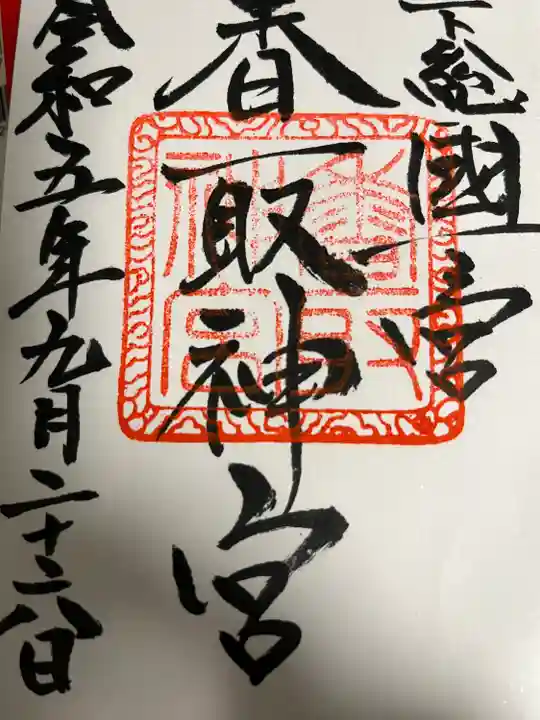 下総國一宮
香取神宮
令和五年九月二十六日
香取
神宮